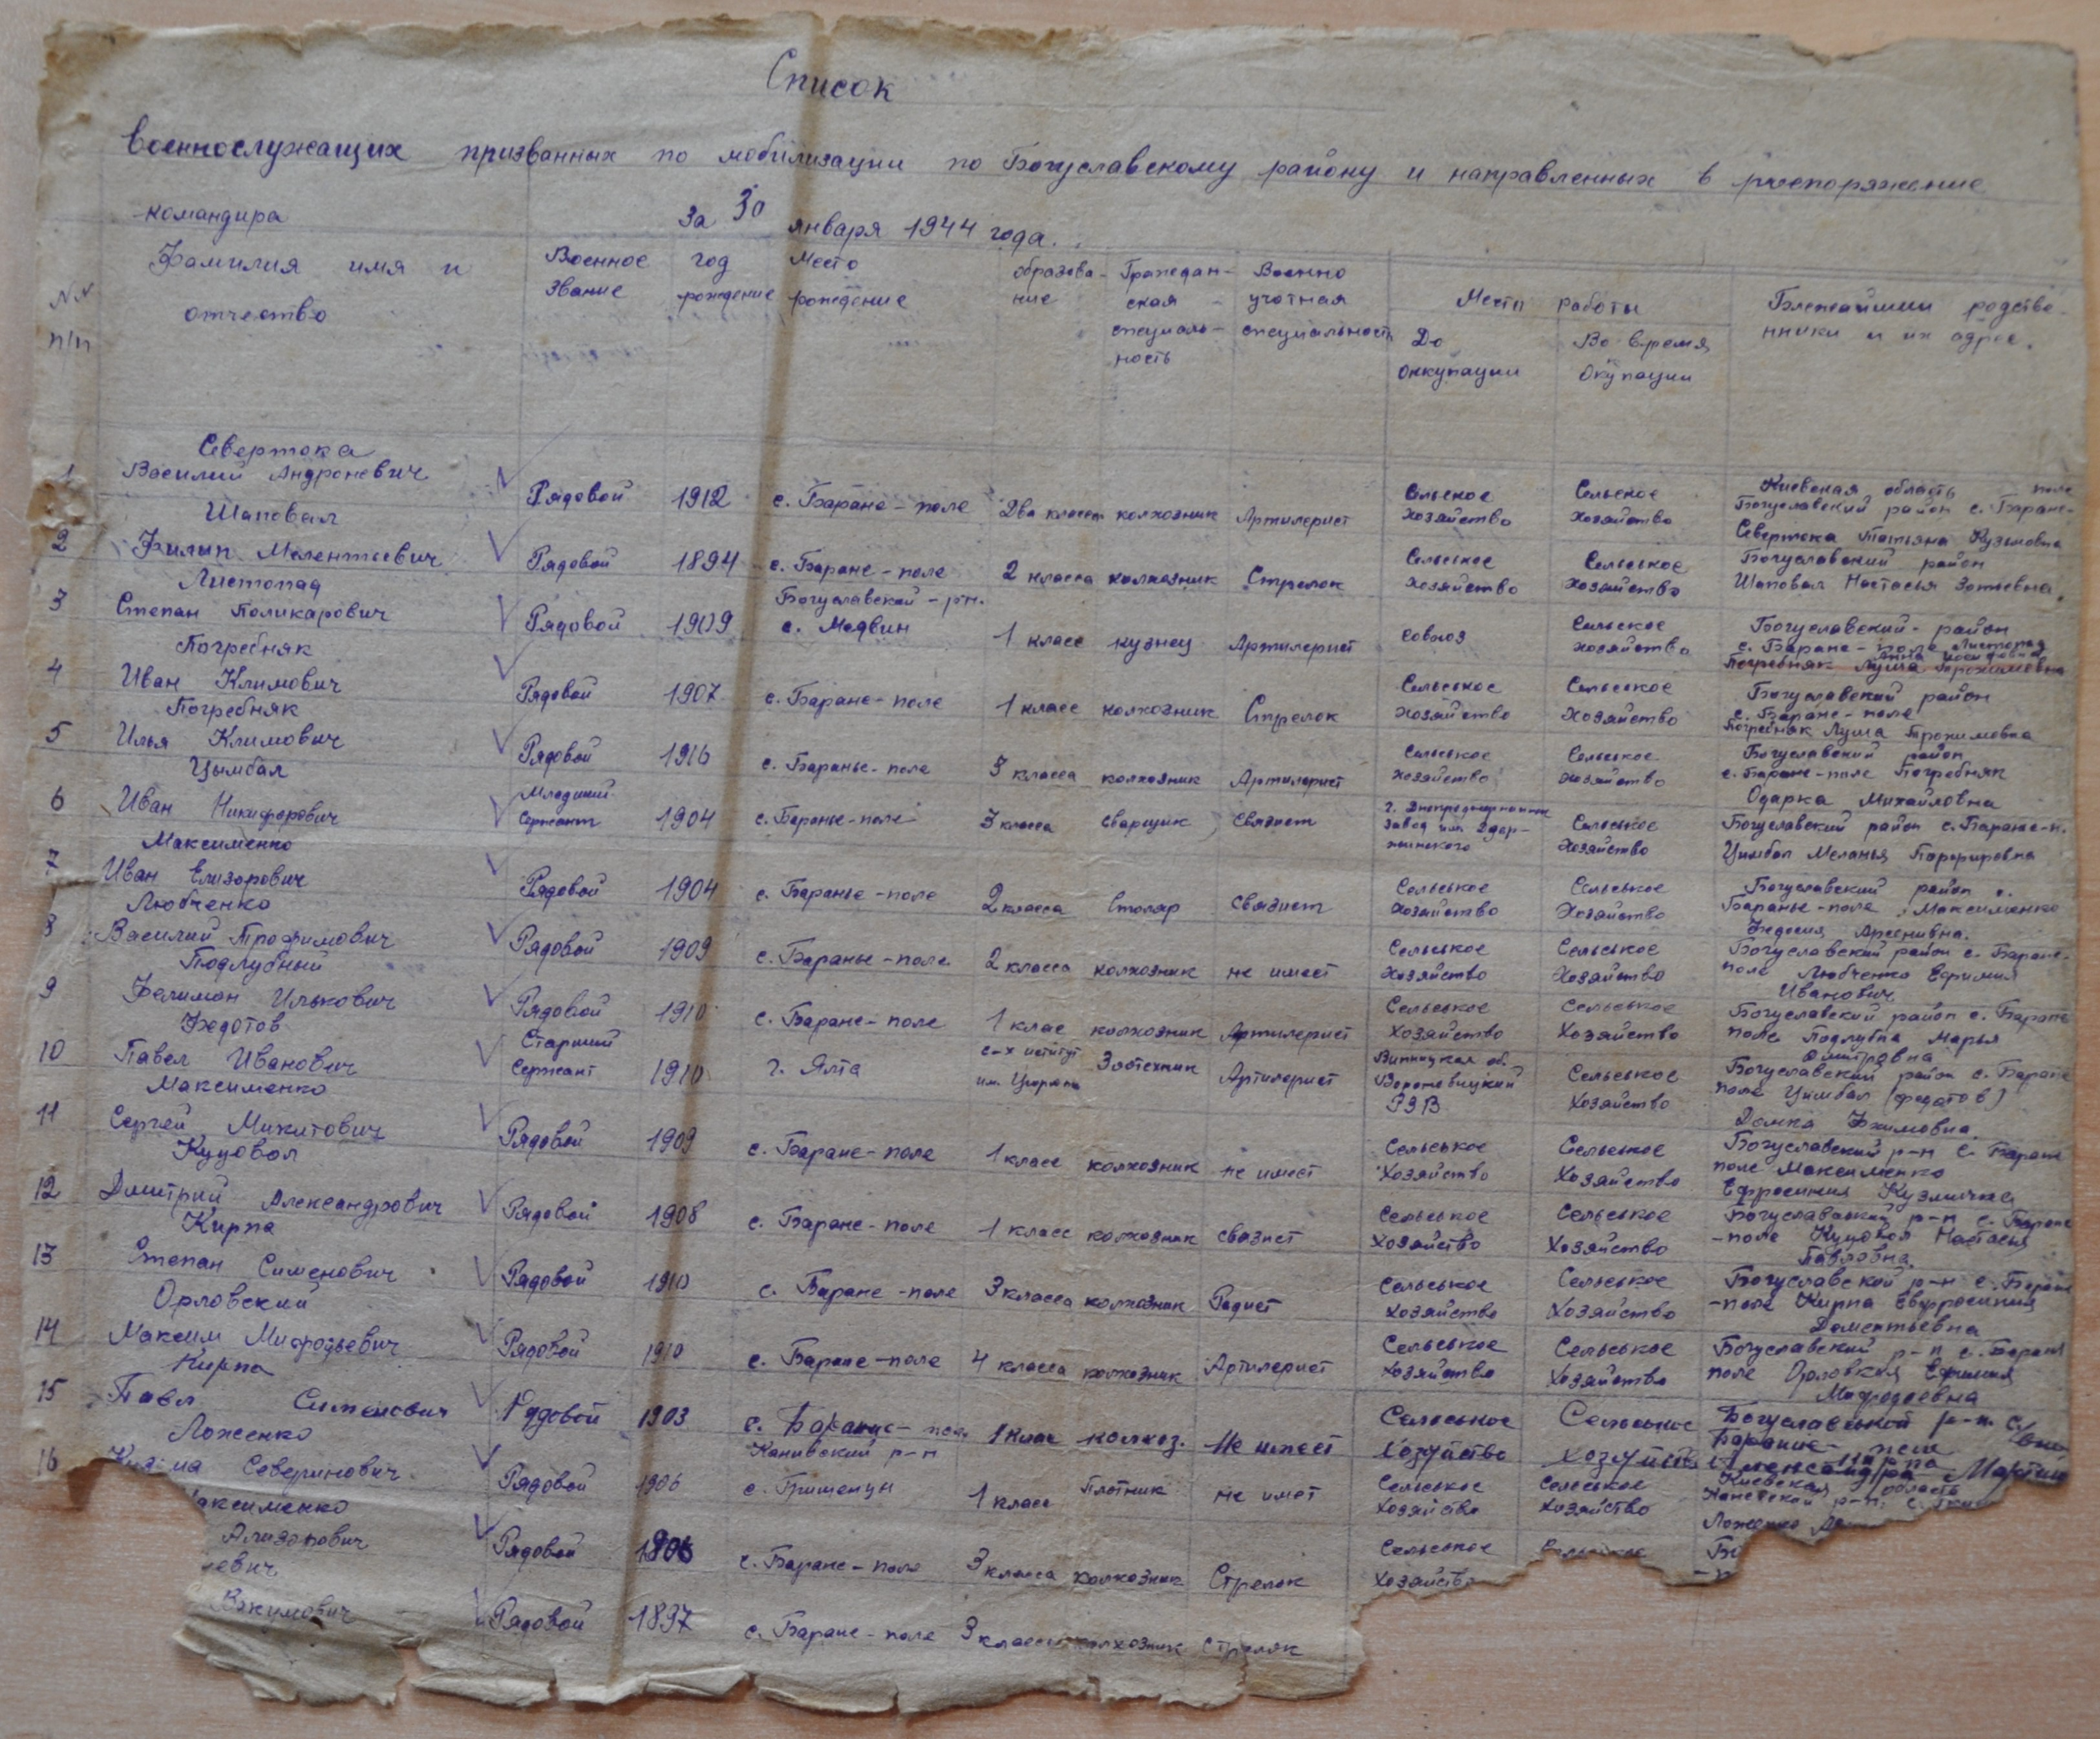 Список
военнослужащих призванных по мобилизации по Богуславскому району и направленных в распоряжение
командира За 30 января 1944 года.
NN п/п Фамилия имя и отчество Военное звание год рождение Место рождение образование Гражданская специальность Военно учотная специальность Место работы До оккупации Во время Окупации Ближайшии родственники и их адрес.
Севертока
1 Василий Андроневич Рядовой 1912 с. Баране-поле Два класса колхозник Артилерист Сельское хозяйство Сельское хозяйство Киевская область Богуславский район с. Баране-поле Севертока Татьяна Кузьмовна
Шаповал
2 Филип Мелентьевич Рядовой 1894 с. Баране-поле 2 класса колхозник Стрелок Сельськое хозяйство Сельськое хозяйство Богуславский район Шаповал Настасья Зотьевна.
Листопад
3 Степан Поликарович Рядовой 1909 Богуславской-рн. с. Медвин 1 класс кузнец Артилерист совхоз Сельское хозяйство Богуславский-район с. Баране-поле Листопад Анна Погребняк Луша Трохимовна
Погребняк
4 Иван Климович Рядовой 1907 с. Баране-поле 1 класс колхозник Стрелок Сельськое хозяйство Сельськое хозяйство Богуславский район с. Баране-поле Погребняк Луша Трохимовна
Погребняк
5 Илья Климович Рядовой 1916 с. Баранье-поле 3 класса колхозник Артилерист Сельськое хозяйство Сельськое хозяйство Богуславский район с. Баране-поле Погребняк Одарка Михайловна
Цымбал
6 Иван Никифорович Младший Сержант 1904 с. Баранье-поле 3 класса сварщик связист завод им Сельськое хозяйство Богуславский район с. Баране-п. Цимбал Меланья Порфировна
Максименко
7 Иван Елизорович Рядовой 1904 с. Баранье-поле 2 класса Столяр связист Сельськое хозяйство Сельськое хозяйство Богуславский район с. Баранье-поле Максименко Федосия Арсенивна.
Любченко
8 Василий Трофимович Рядовой 1909 с. Баранье-поле 2 класса колхозник не имеет Сельськое хозяйство Сельськое хозяйство Богуславский район с. Баране-поле Любченко Ефимия Иванович
Подлубный
9 Фелимон Илькович Рядовой 1910 с. Баране-поле 1 клас колхозник Артилерист Сельськое Хозяйство Сельськое Хозяйство Богуславский район с. Баране поле Подлубна Марья Дмитровна
Федотов
10 Павел Иванович Старший Сержант 1910 г. Ялта с-х иститут им. Зоотехник Артилерист Виницкая об. Вороновицкий Сельськое Хозяйство Богуславский район с. Баране поле Цимбал (федотов) Домка Ефимовна.
Максименко
11 Сергей Микитович Рядовой 1909 с. Баране-поле 1 класс колхозник не имеет Сельськое Хозяйство Сельськое Хозяйство Богуславский р-н с. Баране поле Максименко Ефросиния
Куцовол
12 Дмитрий Александрович Рядовой 1908 с. Баране-поле 1 класс колхозник связист Сельськое Хозяйство Сельськое Хозяйство Богуславский р-н с. Баране-поле Куцовол Настасья Павловна.
Кирпа
13 Степан Сименович Рядовой 1910 с. Баране-поле 3 класса колхозник Радист Сельськое Хозяйство Сельськое Хозяйство Богуславской р-н с. Баране-поле Кирпа Евфросиния Дементьевна
Орловский
14 Максим Мифодьевич Рядовой 1910 с. Баране-поле 4 класса колхозник Артилерист Сельськое Хозяйство Сельськое Хозяйство Богуславский р-н с. Баране поле Орловская Ефимия Мифодоевна
Кирпа
15 Павел Сименович Рядовой 1903 с. Баранье-пол. 1 клас колхоз. Не имеет Сельськое Хозяйство Сельськое Хозяйство Богуславськой р-н. с. Баранье-поле Кирпа
Ложенко
16 Северинович Рядовой 1906 Каневский р-н с. Грищенцы 1 класс Плотник не имеет Сельськое хозяйство Сельськое хозяйство Киевская область Каневской р-н. с. Ложенко
аксименко
Ализорович Рядовой с. Баране-поле 3 класса колхозник Стрелок Сельськое Хозяйство
евич
Рядовой 1897 с. Баране-поле 3 класса колхозник стрелок